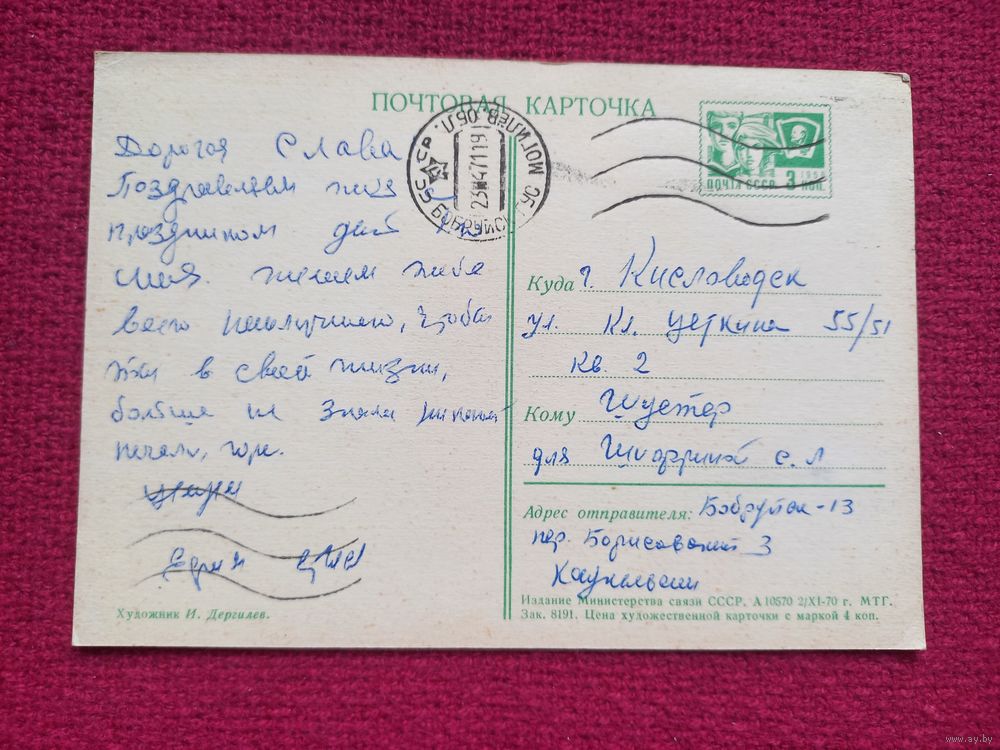 ПОЧТОВАЯ КАРТОЧКА
Дорогая Слава
Поздравляем тебя с
праздником
желаем тебе
всего наилучшего, чтобы
ты в своей жизни,
больше не знала никакой
печали, горя.
Художник И. Дергилев.
СССР БОБРУЙСК МОГИЛЕВ. ОБЛ.
ПОЧТА СССР 3 КОП.
Куда г. Кисловодск
ул. Кл. Цеткина 55/51
кв. 2
Кому Шустер
для с. л
Адрес отправителя: Бобруйск-13
пер. Борисовский 3
Издание Министерства связи СССР. А 10570 2/XI-70 г. МТГ.
Зак. 8191. Цена художественной карточки с маркой 4 коп.
www.ay.by